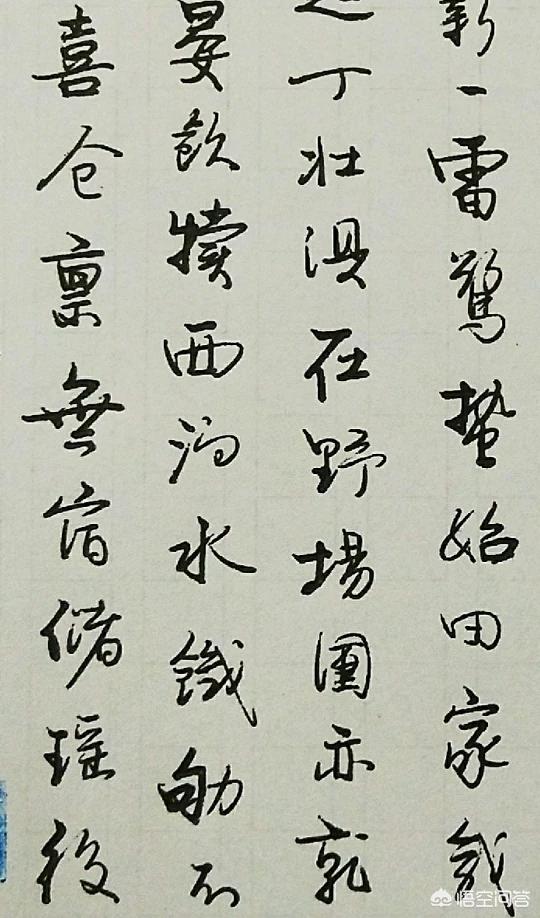 新一雷驚蟄始田家幾
起丁壯俱在野場圃亦就
晏飲犢西澗水饑劬不
喜仓稟無宿儲瑶役
悟空问答